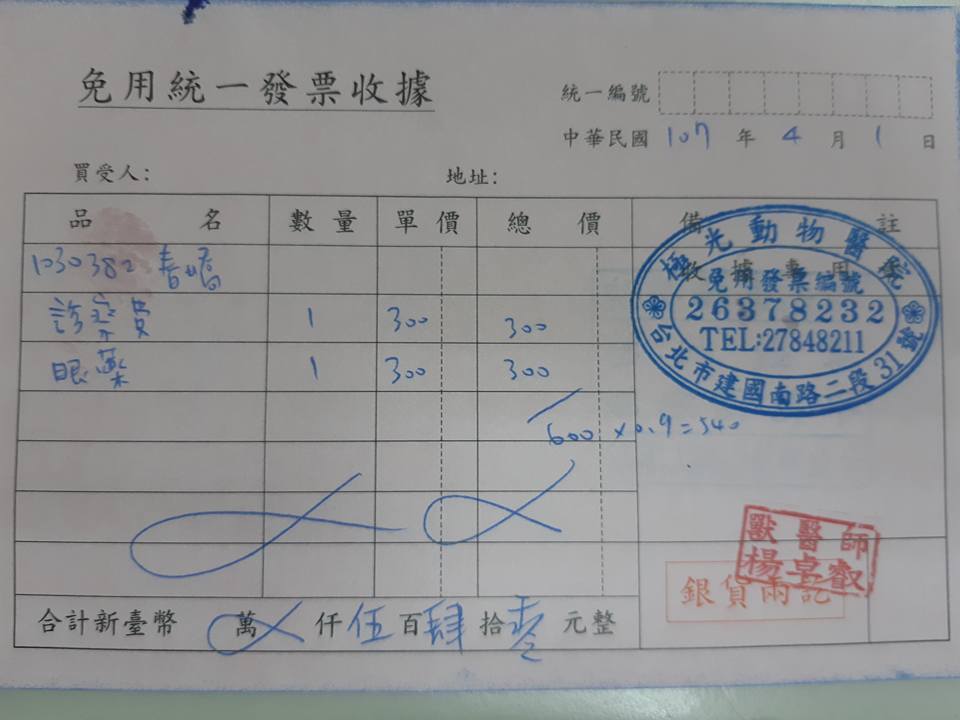 免用統一發票收據
統一編號
中華民國 107 年 4 月 1 日
買受人: 地址:
品 名 數量 單價 總價 備 註
1030382 春嬌
診察費 1 300 300
眼藥 1 300 300
600 x 0.9 = 540
合計新臺幣 萬 仟 伍 百 肆 拾 零 元整
極光動物醫院
收據專用章
免用發票編號
26378232
TEL:27848211
台北市建國南路二段31號
獸醫師
楊卓叡
銀貨兩訖